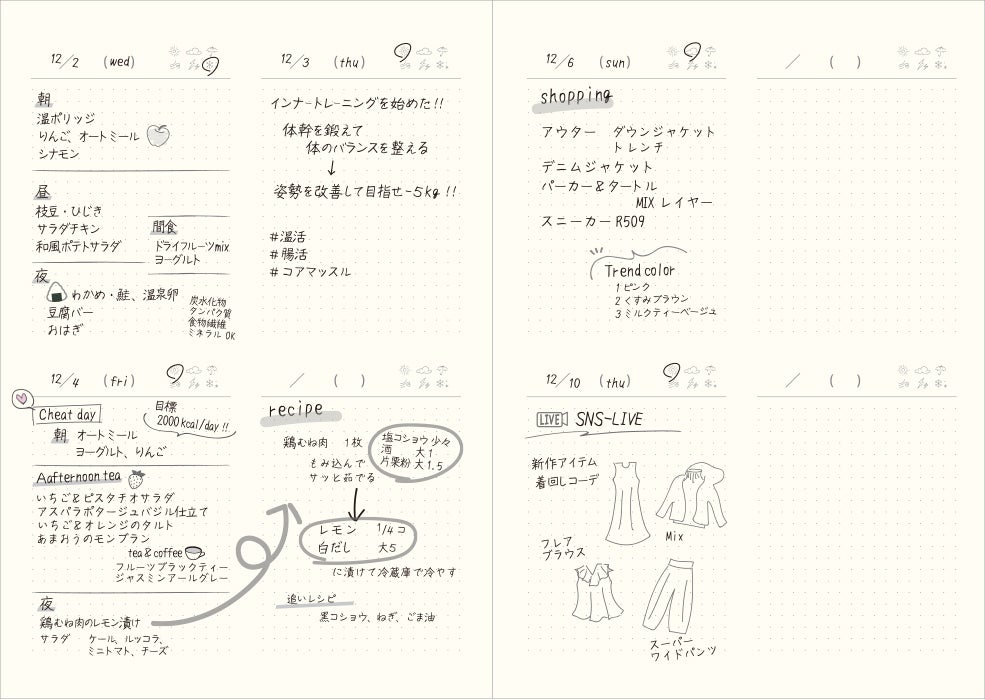 12/2 (wed)
朝
温ポリッジ
りんご、オートミール
シナモン
昼
枝豆・ひじき
サラダチキン
和風ポテトサラダ
間食
ドライフルーツmix
ヨーグルト
夜
わかめ・鮭、温泉卵
豆腐バー
おはぎ
炭水化物
タンパク質
食物繊維
ミネラル OK
12/3 (thu)
インナートレーニングを始めた!!
体幹を鍛えて
体のバランスを整える
↓
姿勢を改善して目指せ-5kg !!
#温活
#腸活
#コアマッスル
12/4 (fri)
Cheat day
目標
2000kcal/day!!
朝 オートミール
ヨーグルト、りんご
Aafternoon tea
いちご&ピスタチオサラダ
アスパラポタージュバジル仕立て
いちご&オレンジのタルト
あまおうのモンブラン
tea&coffee
フルーツブラックティー
ジャスミンアールグレー
夜
鶏むね肉のレモン漬け
サラダ ケール、ルッコラ、
ミニトマト、チーズ
/ ( )
recipe
鶏むね肉 1枚
塩コショウ少々
酒 大1
片栗粉 大1.5
もみ込んで
サッと茹でる
レモン 1/4コ
白だし 大5
に漬けて冷蔵庫で冷やす
追いレシピ
黒コショウ、ねぎ、ごま油
12/6 (sun)
shopping
アウター ダウンジャケット
トレンチ
デニムジャケット
パーカー&タートル
MIX レイヤー
スニーカー R509
Trend color
1 ピンク
2 くすみブラウン
3 ミルクティーベージュ
/ ( )
12/10 (thu)
LIVE SNS-LIVE
新作アイテム
着回しコーデ
Mix
フレア
ブラウス
スーパー
ワイドパンツ
/ ( )